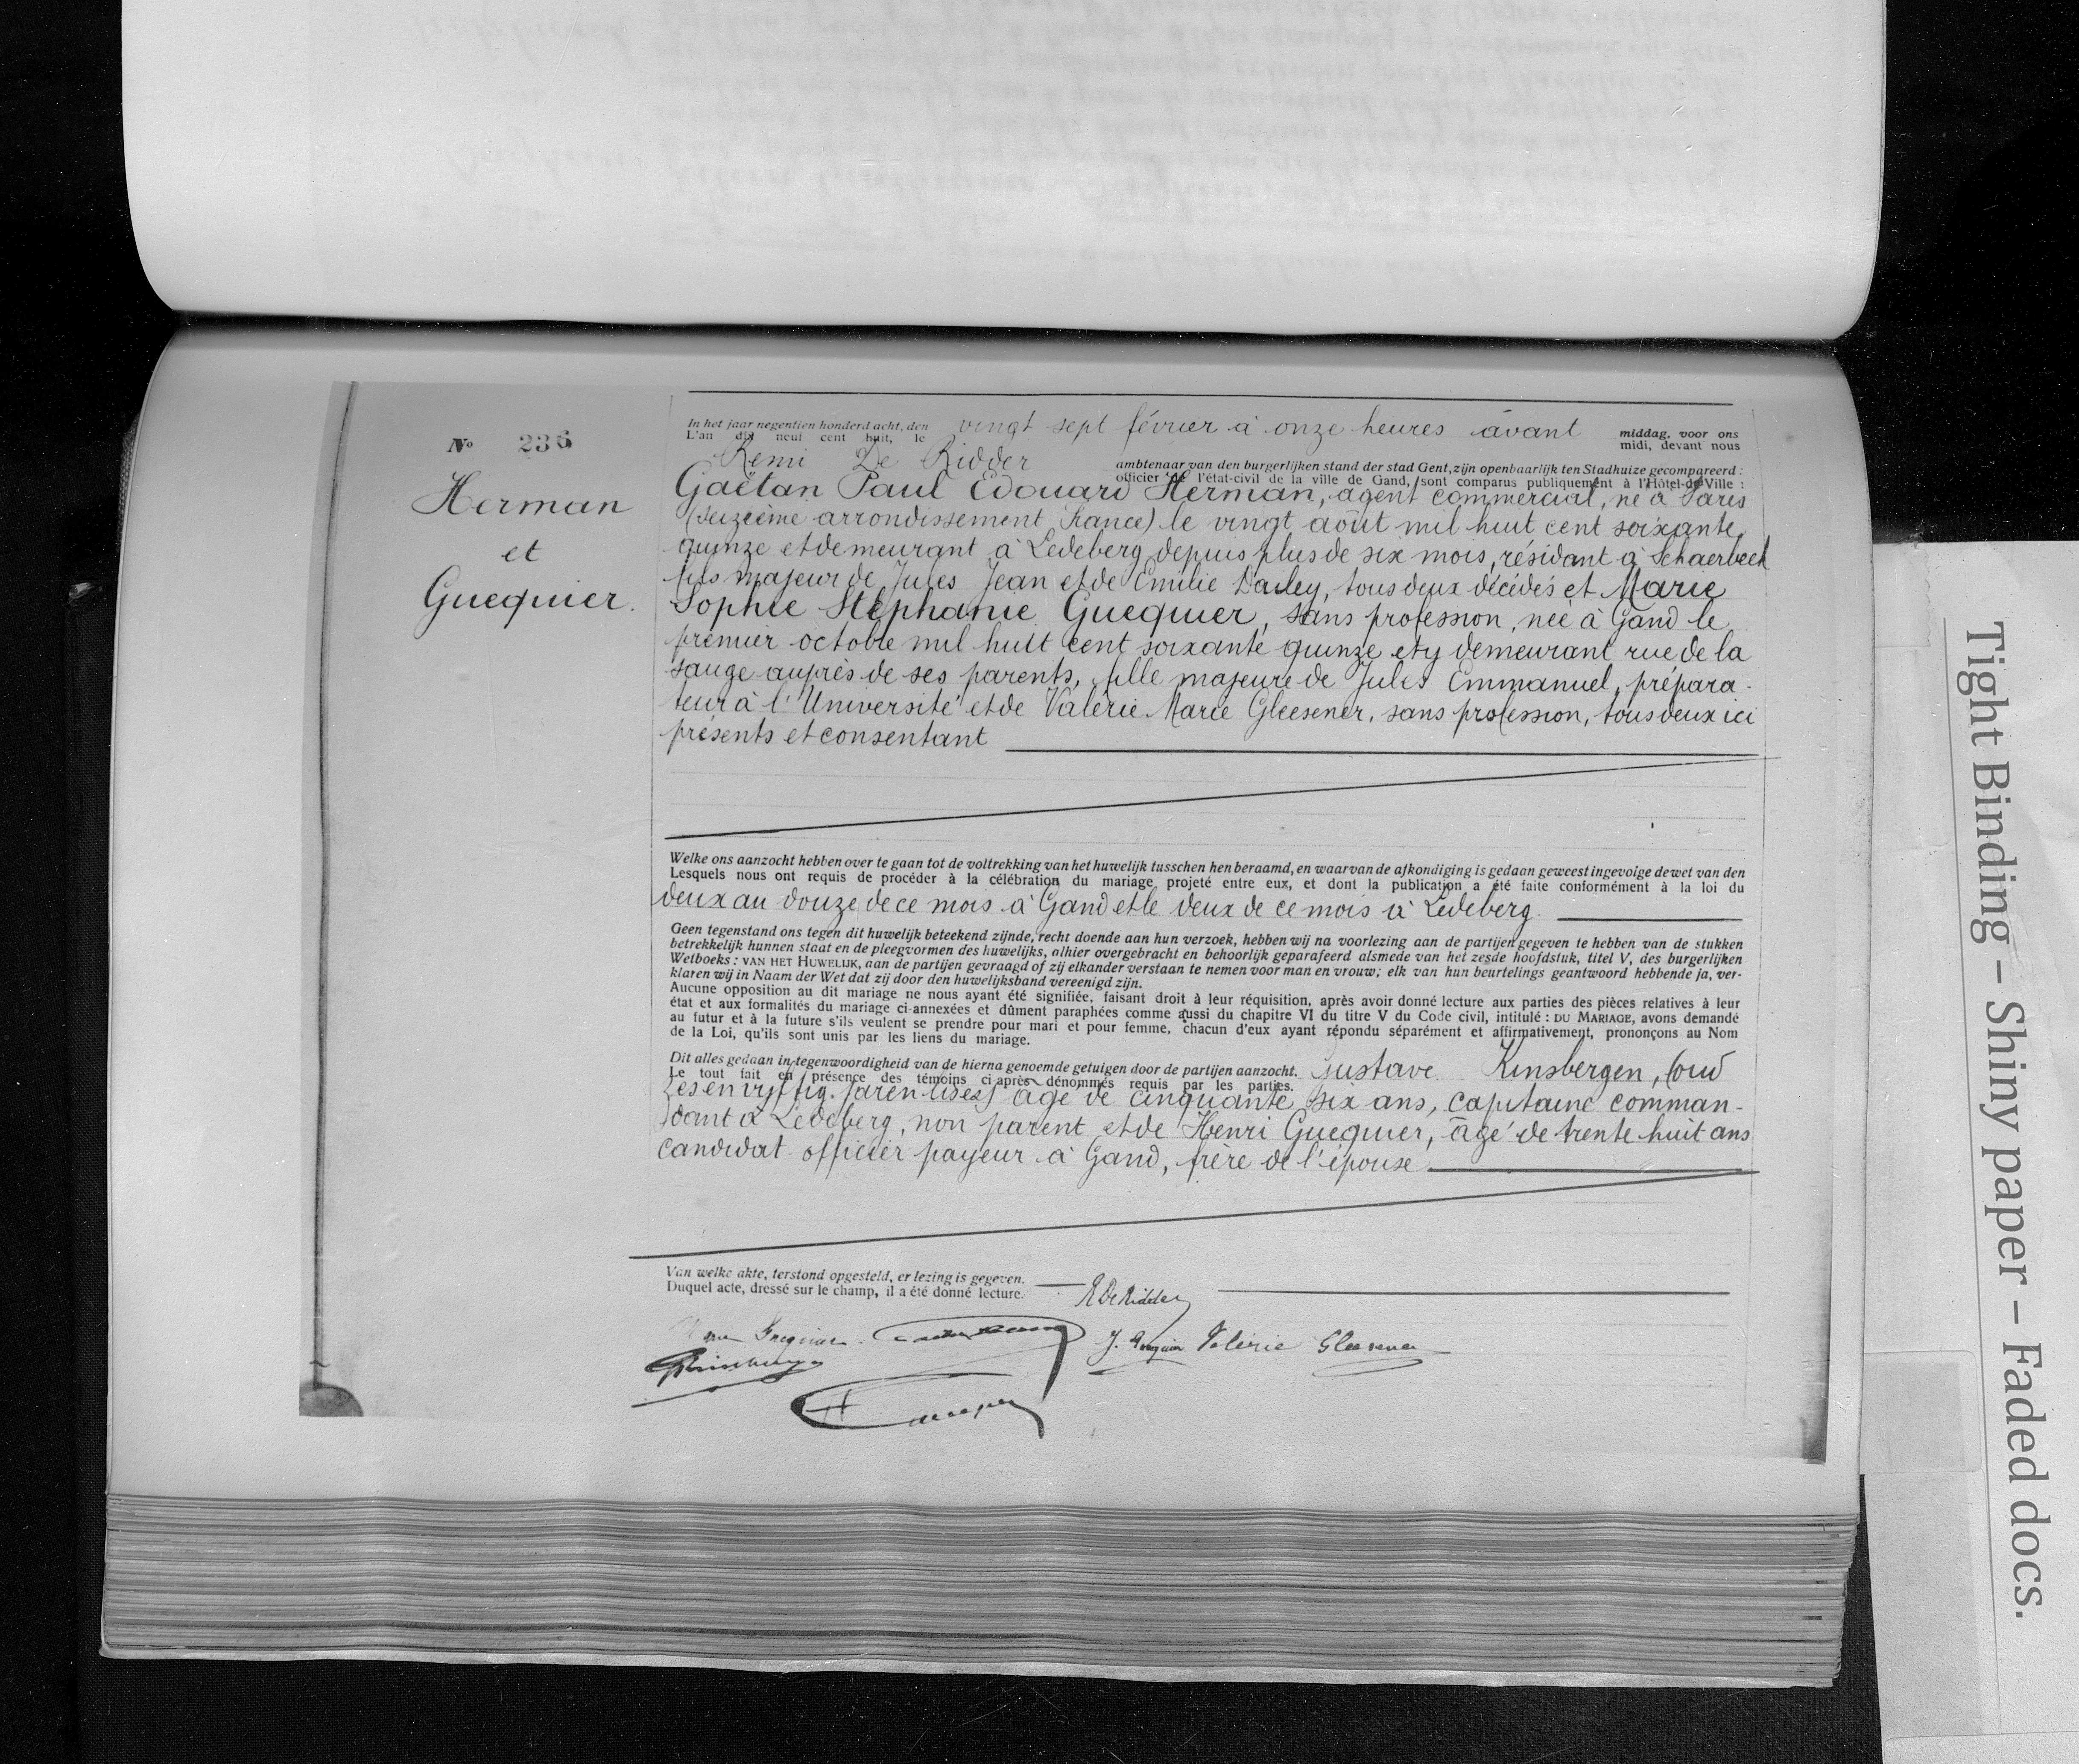 No 236
Herman
et
Guequier.
In het jaar negentien honderd acht, den
L'an dix neuf cent huit, le vingt sept février à onze heures avant middag, voor ons
midi, devant nous
Remi De Ridder ambtenaar van den burgerlijken stand der stad Gent, zijn openbaarlijk ten Stadhuize gecompareerd :
officier de l'état-civil de la ville de Gand, sont comparus publiquement à l'Hôtel-de-Ville :
Gaëtan Paul Edouard Herman, agent commercial, né à Paris
(seizième arrondissement France) le vingt août mil huit cent soixante
quinze et demeurant à Ledeberg depuis plus de six mois, résidant à Schaerbeek
fils majeur de Jules Jean et de Emilie Dailey, tous deux décédés et Marie
Sophie Stéphanie Guequier, sans profession, née à Gand le
premier octobre mil huit cent soixante quinze et y demeurant rue de la
sauge auprès de ses parents, fille majeure de Jules Emmanuel, prépara-
teur à l'Université et de Valérie Marie Gleesener, sans profession, tous deux ici
présents et consentant
Welke ons aanzocht hebben over te gaan tot de voltrekking van het huwelijk tusschen hen beraamd, en waarvan de afkondiging is gedaan geweest ingevolge de wet van den
Lesquels nous ont requis de procéder à la célébration du mariage projeté entre eux, et dont la publication a été faite conformément à la loi du
deux au douze de ce mois à Gand et le deux de ce mois à Ledeberg.
Geen tegenstand ons tegen dit huwelijk beteekend zijnde, recht doende aan hun verzoek, hebben wij na voorlezing aan de partijen gegeven te hebben van de stukken
betrekkelijk hunnen staat en de pleegvormen des huwelijks, alhier overgebracht en behoorlijk geparafeerd alsmede van het zesde hoofdstuk, titel V, des burgerlijken
Wetboeks : VAN HET HUWELIJK, aan de partijen gevraagd of zij elkander verstaan te nemen voor man en vrouw; elk van hun beurtelings geantwoord hebbende ja, ver-
klaren wij in Naam der Wet dat zij door den huwelijksband vereenigd zijn.
Aucune opposition au dit mariage ne nous ayant été signifiée, faisant droit à leur réquisition, après avoir donné lecture aux parties des pièces relatives à leur
état et aux formalités du mariage ci-annexées et dûment paraphées comme aussi du chapitre VI du titre V du Code civil, intitulé : DU MARIAGE, avons demandé
au futur et à la future s'ils veulent se prendre pour mari et pour femme, chacun d'eux ayant répondu séparément et affirmativement, prononçons au Nom
de la Loi, qu'ils sont unis par les liens du mariage.
Dit alles gedaan in tegenwoordigheid van de hierna genoemde getuigen door de partijen aanzocht.
Le tout fait en présence des témoins ci-après dénommés requis par les parties. Gustave Kinsbergen, (oud
zesenvijftig. âgé de cinquante six ans, capitaine comman-
dant à Ledeberg, non parent et de Henri Guequier, âgé de trente huit ans
candidat officier payeur à Gand, frère de l'épouse
Van welke akte, terstond opgesteld, er lezing is gegeven.
Duquel acte, dressé sur le champ, il a été donné lecture. R De Ridder
Valérie Gleesener
Tight Binding – Shiny paper – Faded docs.